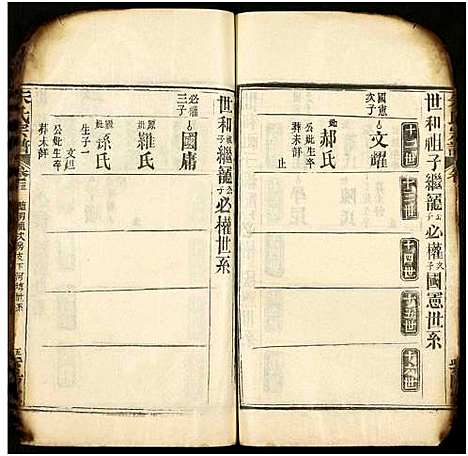 世和祖子繼籠公子必權次子國憲世系
十二世
十三世
十四世
十五世
十六世
國憲次子
文耀
郝氏
公妣生卒
葬未詳
世和祖子繼籠公子必權世系
必權三子
國庸
羅氏
孫氏
生子一
文煊
公妣生卒
葬未詳
朱氏宗譜
卷三